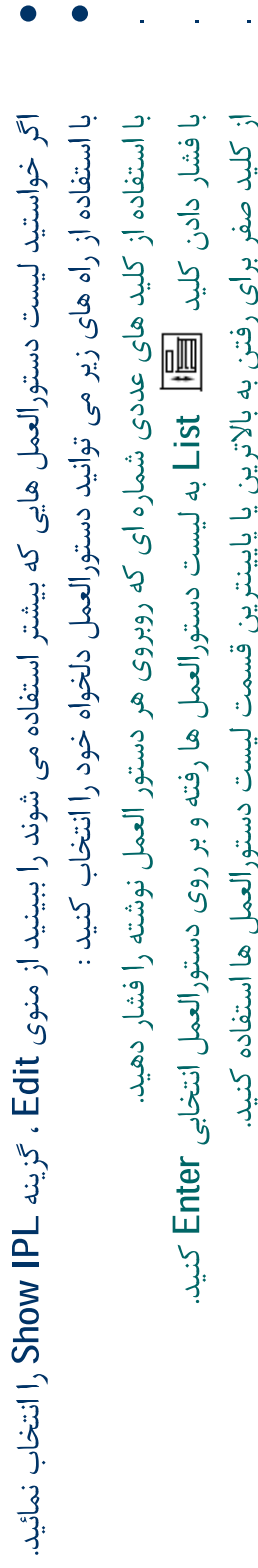 • اگر خواستید لیست دستورالعمل هایی که بیشتر استفاده می شوند را ببینید از منوی Edit ، گزینه Show IPL را انتخاب نمائید.
• با استفاده از راه های زیر می توانید دستورالعمل دلخواه خود را انتخاب کنید :
. با استفاده از کلید های عددی شماره ای که روبروی هر دستور العمل نوشته را فشار دهید.
. با فشار دادن کلید List به لیست دستورالعمل ها رفته و بر روی دستورالعمل انتخابی Enter کنید.
. از کلید صفر برای رفتن به بالاترین یا پایینترین قسمت لیست دستورالعمل ها استفاده کنید.